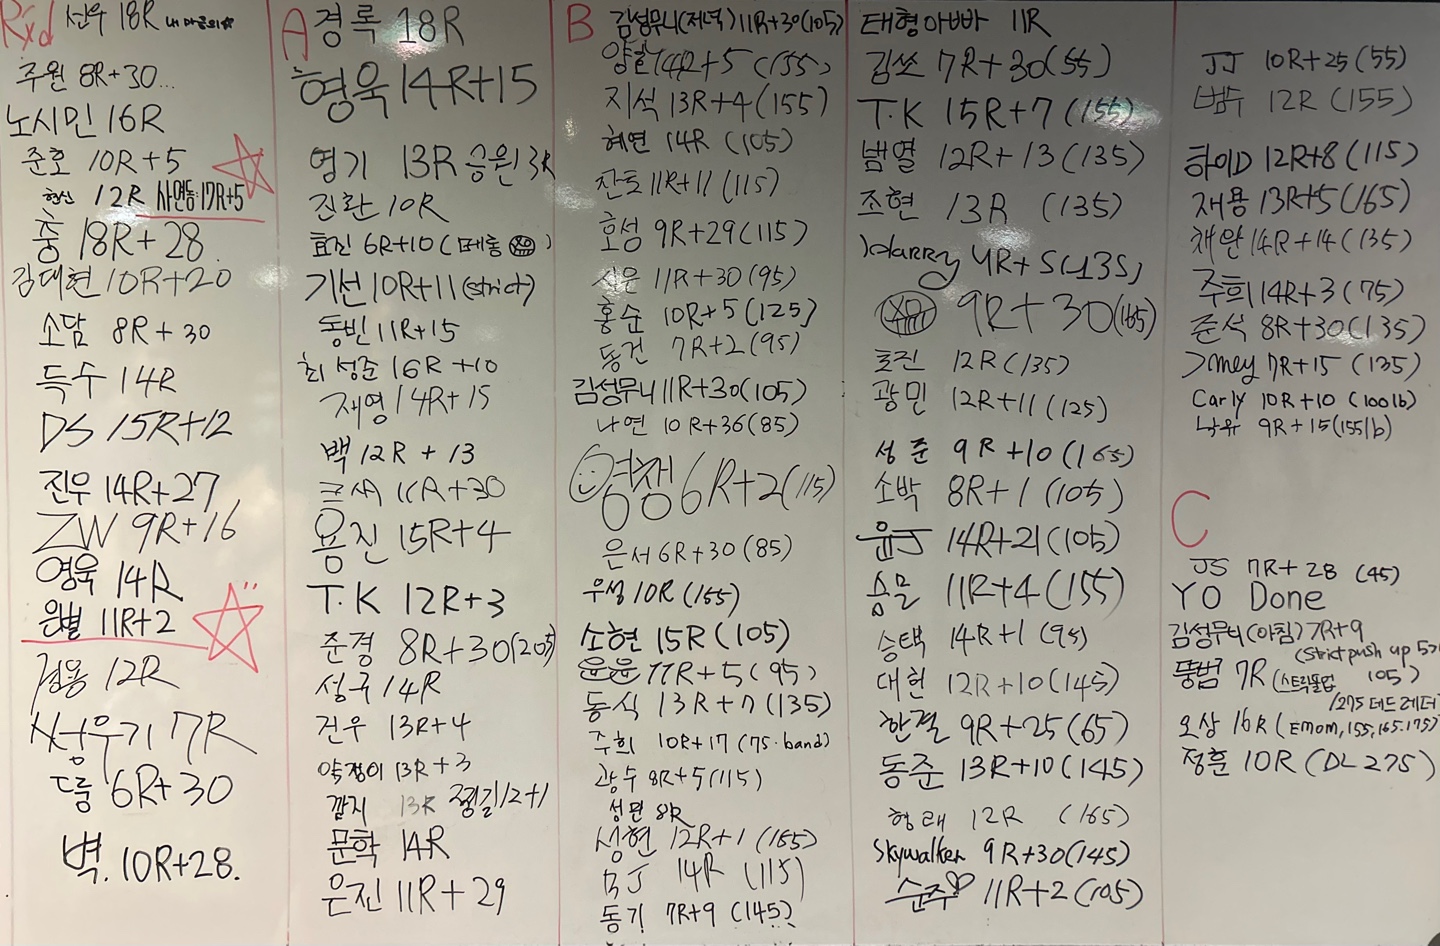 Rxd
선우 18R
주원 8R+30...
노시민 16R
준호 10R+5
형신 12R 사연동:17R+5
충 18R+28
김대현 10R+20
소담 8R+30
득수 14R
DS 15R+12
진우 14R+27
ZW 9R+16
영욱 14R
은별 11R+2
경용 12R
7R
드룽 6R+30
벽. 10R+28.
A
경록 18R
형욱 14R+15
영기 13R 승원 13R
진환 10R
효진 6R+10 (메롱 )
기선 10R+11 (strict)
동빈 11R+15
최성준 16R+10
재영 14R+15
백 12R + 13
11R+30
용진 15R+4
T.K 12R+3
준경 8R+30(205)
성구 14R
건우 13R+4
약정이 13R+3
깜지 13R 정길 12+1
문학 14R
은진 11R+29
B
김성무니(저녁) 11R+30(105)
양갈 14R+5 (155)
지석 13R+4(155)
혜연 14R (105)
잔토 11R+11 (115)
호성 9R+29(115)
시은 11R+30(95)
홍순 10R+5(125)
동건 7R+2(95)
김성무니 11R+30(105)
나연 10R+36(85)
영쟁 6R+2(115)
은서 6R+30(85)
우성 10R(155)
소현 15R(105)
윤윤 11R+5(95)
동식 13R+7(135)
주희 10R+17(75.band)
광수 8R+5(115)
성민 8R
성현 12R+1(155)
MJ 14R (115)
동기 7R+9 (145)
태형아빠 11R
김쏘 7R+30(55)
T.K 15R+7 (155)
범열 12R+13(135)
조현 13R (135)
Harry 4R+5(135)
9R+30(165)
효진 12R(135)
광민 12R+11(125)
성준 9R+10(165)
소박 8R+1(105)
윤J 14R+21(105)
숭믈 11R+4(155)
승택 14R+1(95)
대현 12R+10(145)
한결 9R+25(65)
동준 13R+10(145)
형래 12R (165)
Skywalker 9R+30(145)
순주♡ 11R+2(105)
JJ 10R+25(55)
범수 12R (155)
하이D 12R+8(115)
재용 13R+5(165)
채완 14R+14(135)
주희 14R+3(75)
준석 8R+30(135)
Jmey 7R+15 (135)
Carly 10R+10 (100lb)
낙유 9R+15(155lb)
C
JS 7R+28 (45)
YO Done
김성무니(아침) 7R+9
(strict push up 5)
뚱범 7R (스트릭풀업 105)
/275 데드 레더
오상 16R (EMOM, 155,165.175)
정훈 10R (DL 275)